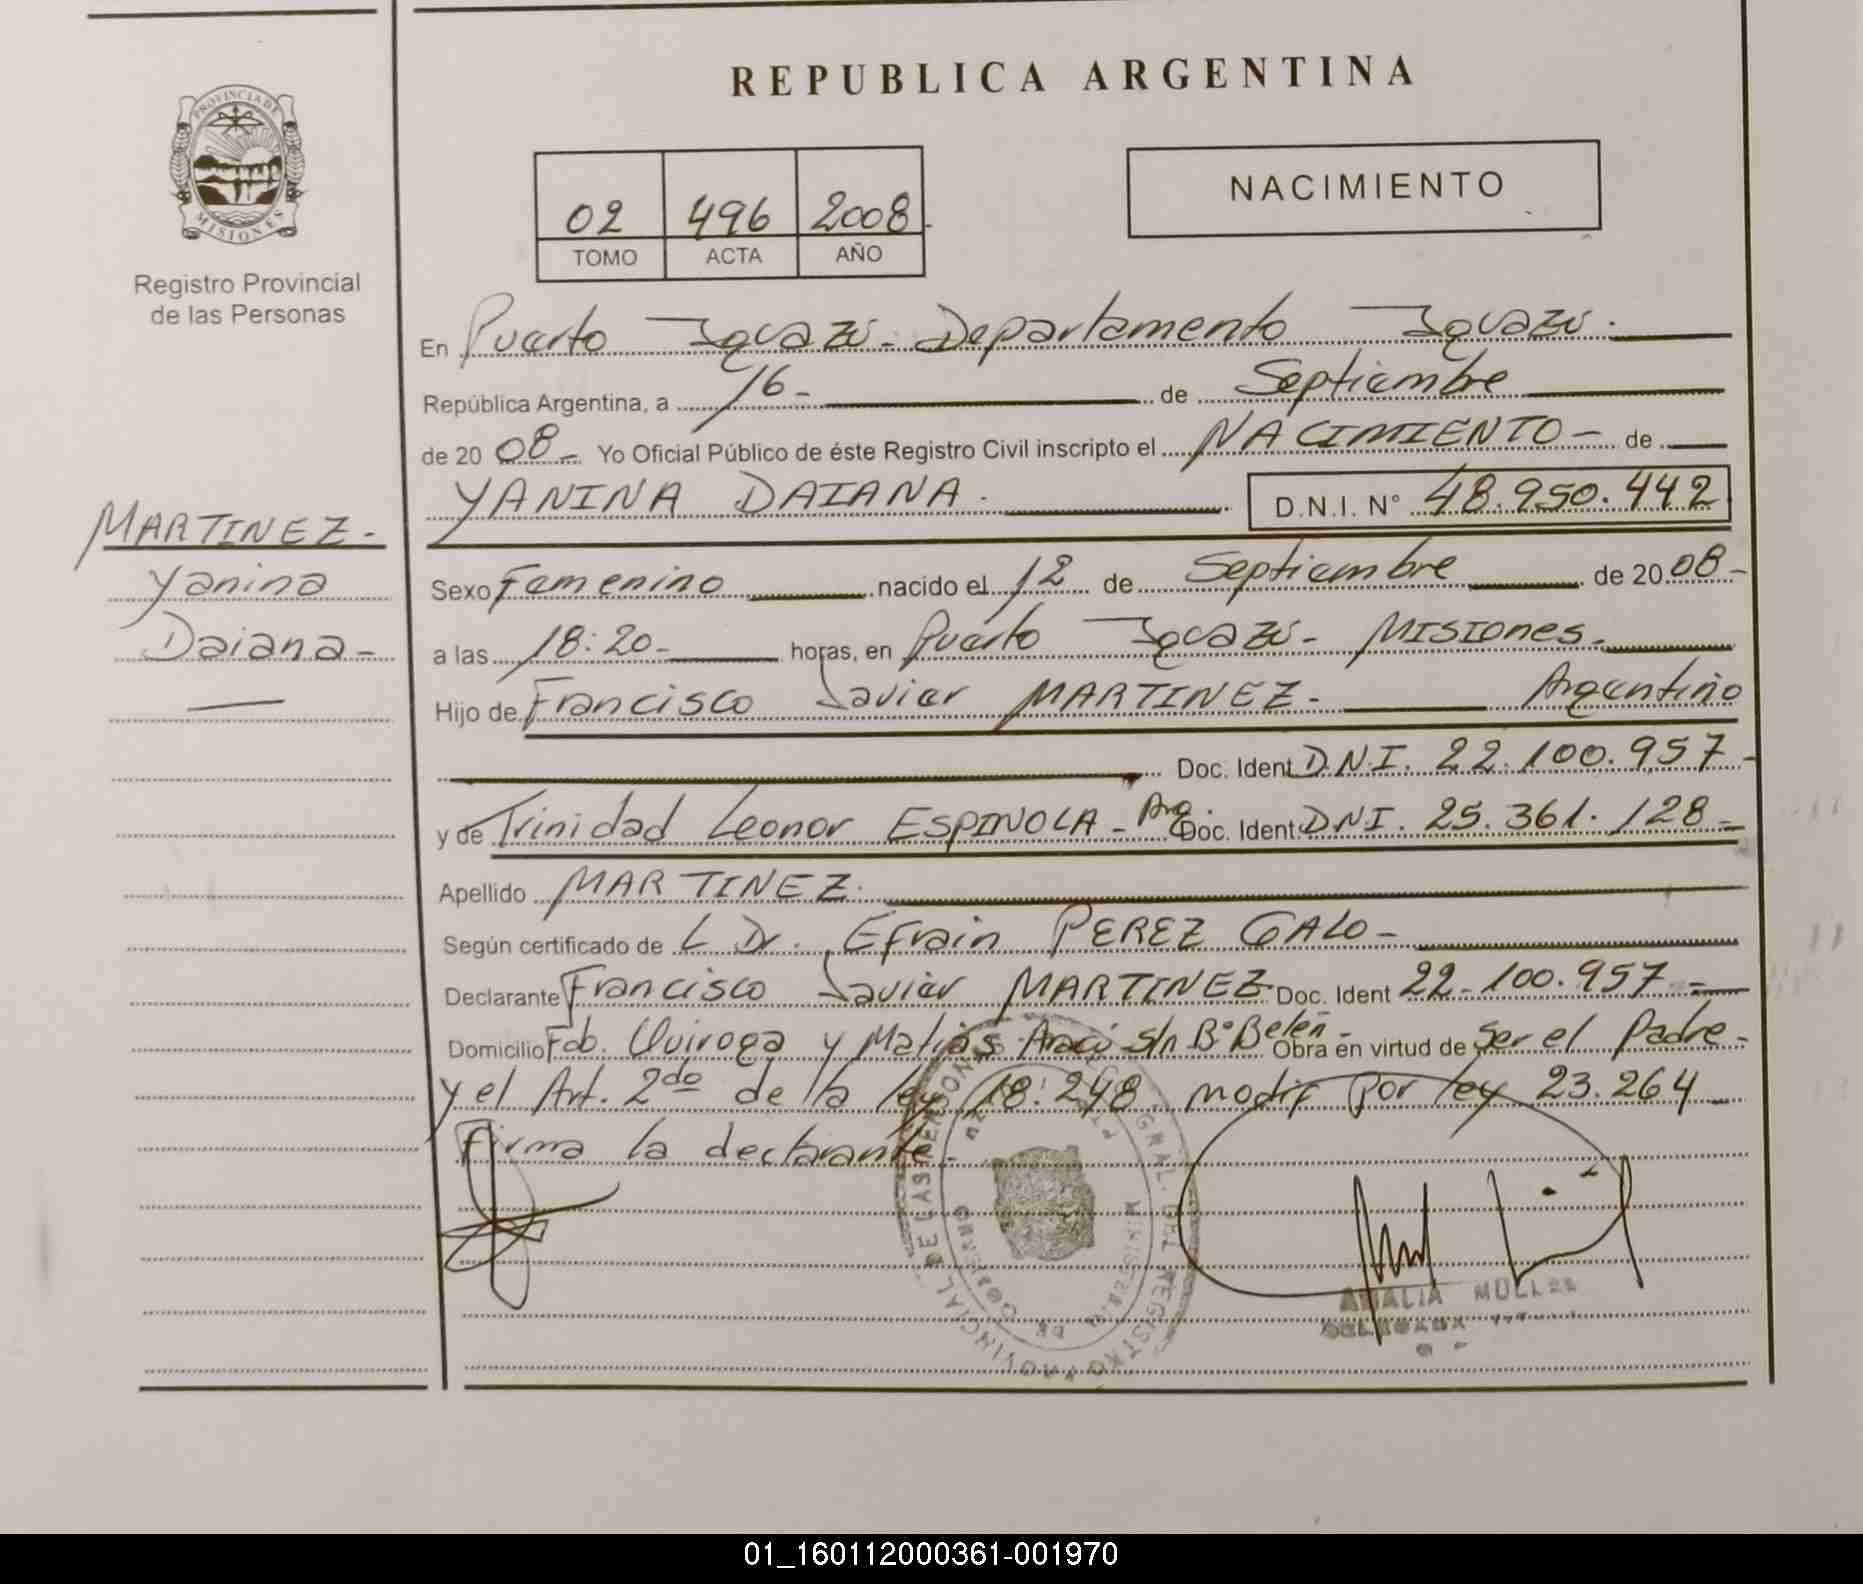 REPUBLICA ARGENTINA
PROVINCIA DE MISIONES
Registro Provincial
de las Personas
02 496 2008
TOMO ACTA AÑO
NACIMIENTO
En Puerto Iguazú - Departamento Iguazú.
República Argentina, a 16 - de Septiembre
de 20 08 - Yo Oficial Público de éste Registro Civil inscripto el NACIMIENTO - de
YANINA DAIANA. D.N.I. N° 48.950.442
MARTINEZ -
Yanina
Daiana -
Sexo Femenino nacido el 12 de Septiembre de 20 08 -
a las 18:20 - horas, en Puerto Iguazú - Misiones -
Hijo de Francisco Javier MARTINEZ - Argentino
Doc. Ident D.N.I. 22.100.957 -
y de Trinidad Leonor ESPINOLA - Arg. Doc. Ident DNI. 25.361.128 -
Apellido MARTINEZ.
Según certificado de L Dr. Efrain PEREZ GALO -
Declarante Francisco Javier MARTINEZ Doc. Ident 22.100.957 -
Domicilio Fdo. Quiroga y Matias s/n B° Belén - Obra en virtud de Ser el Padre -
y el Art. 2do de la ley 18.248 modif por ley 23.264 -
Firma la declarante -
REGISTRO PROVINCIAL DE LAS PERSONAS
MINISTERIO DE GOBIERNO
AMALIA MULLER
01_160112000361-001970